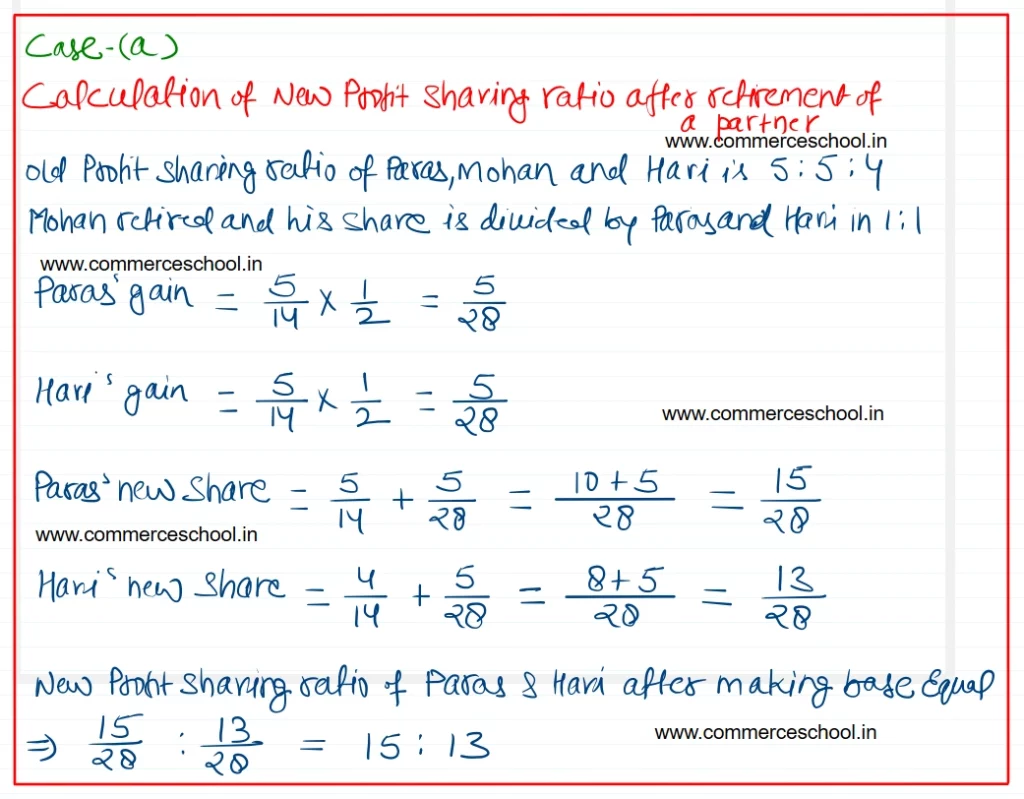 Case-(a)
Calculation of New Profit Sharing ratio after retirement of
a partner
www.commerceschool.in
old Profit sharing ratio of Paras, Mohan and Hari is 5:5:4
Mohan retired and his share is divided by Paras and Hari in 1:1
www.commerceschool.in
Paras' gain = 5/14 × 1/2 = 5/28
Hari's gain = 5/14 × 1/2 = 5/28
www.commerceschool.in
Paras' new share = 5/14 + 5/28 = 10+5/28 = 15/28
www.commerceschool.in
Hari's new share = 4/14 + 5/28 = 8+5/28 = 13/28
New Profit sharing ratio of Paras & Hari after making base Equal
⇒ 15/28 : 13/28 = 15:13
www.commerceschool.in